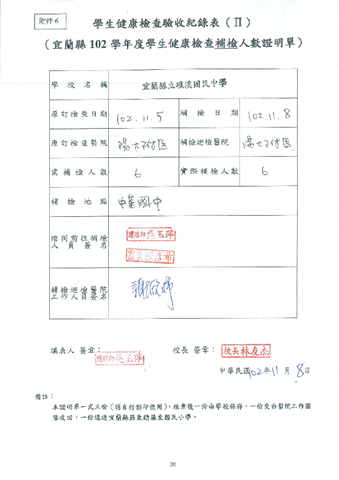 附件6
學生健康檢查驗收紀錄表(II)
(宜蘭縣102學年度學生健康檢查補檢人數證明單)
學校名稱 宜蘭縣立礁溪國民中學
原訂檢查日期 102.11.5 補檢日期 102.11.8
原訂檢查醫院 陽大附醫 補檢巡檢醫院 陽大附醫
需補檢人數 6 實際補檢人數 6
補檢地點 國中
陪同前往補檢
人員簽名
補檢巡檢醫院
工作人員簽名
填表人簽章: 校長簽章: 校長林友杰
中華民國102年11月8日
備註:
本證明單一式三份(請自行影印使用),檢畢後一份由學校保存,一份交由醫院工作團
隊收回,一份逕送宜蘭縣羅東鎮羅東國民小學。
20